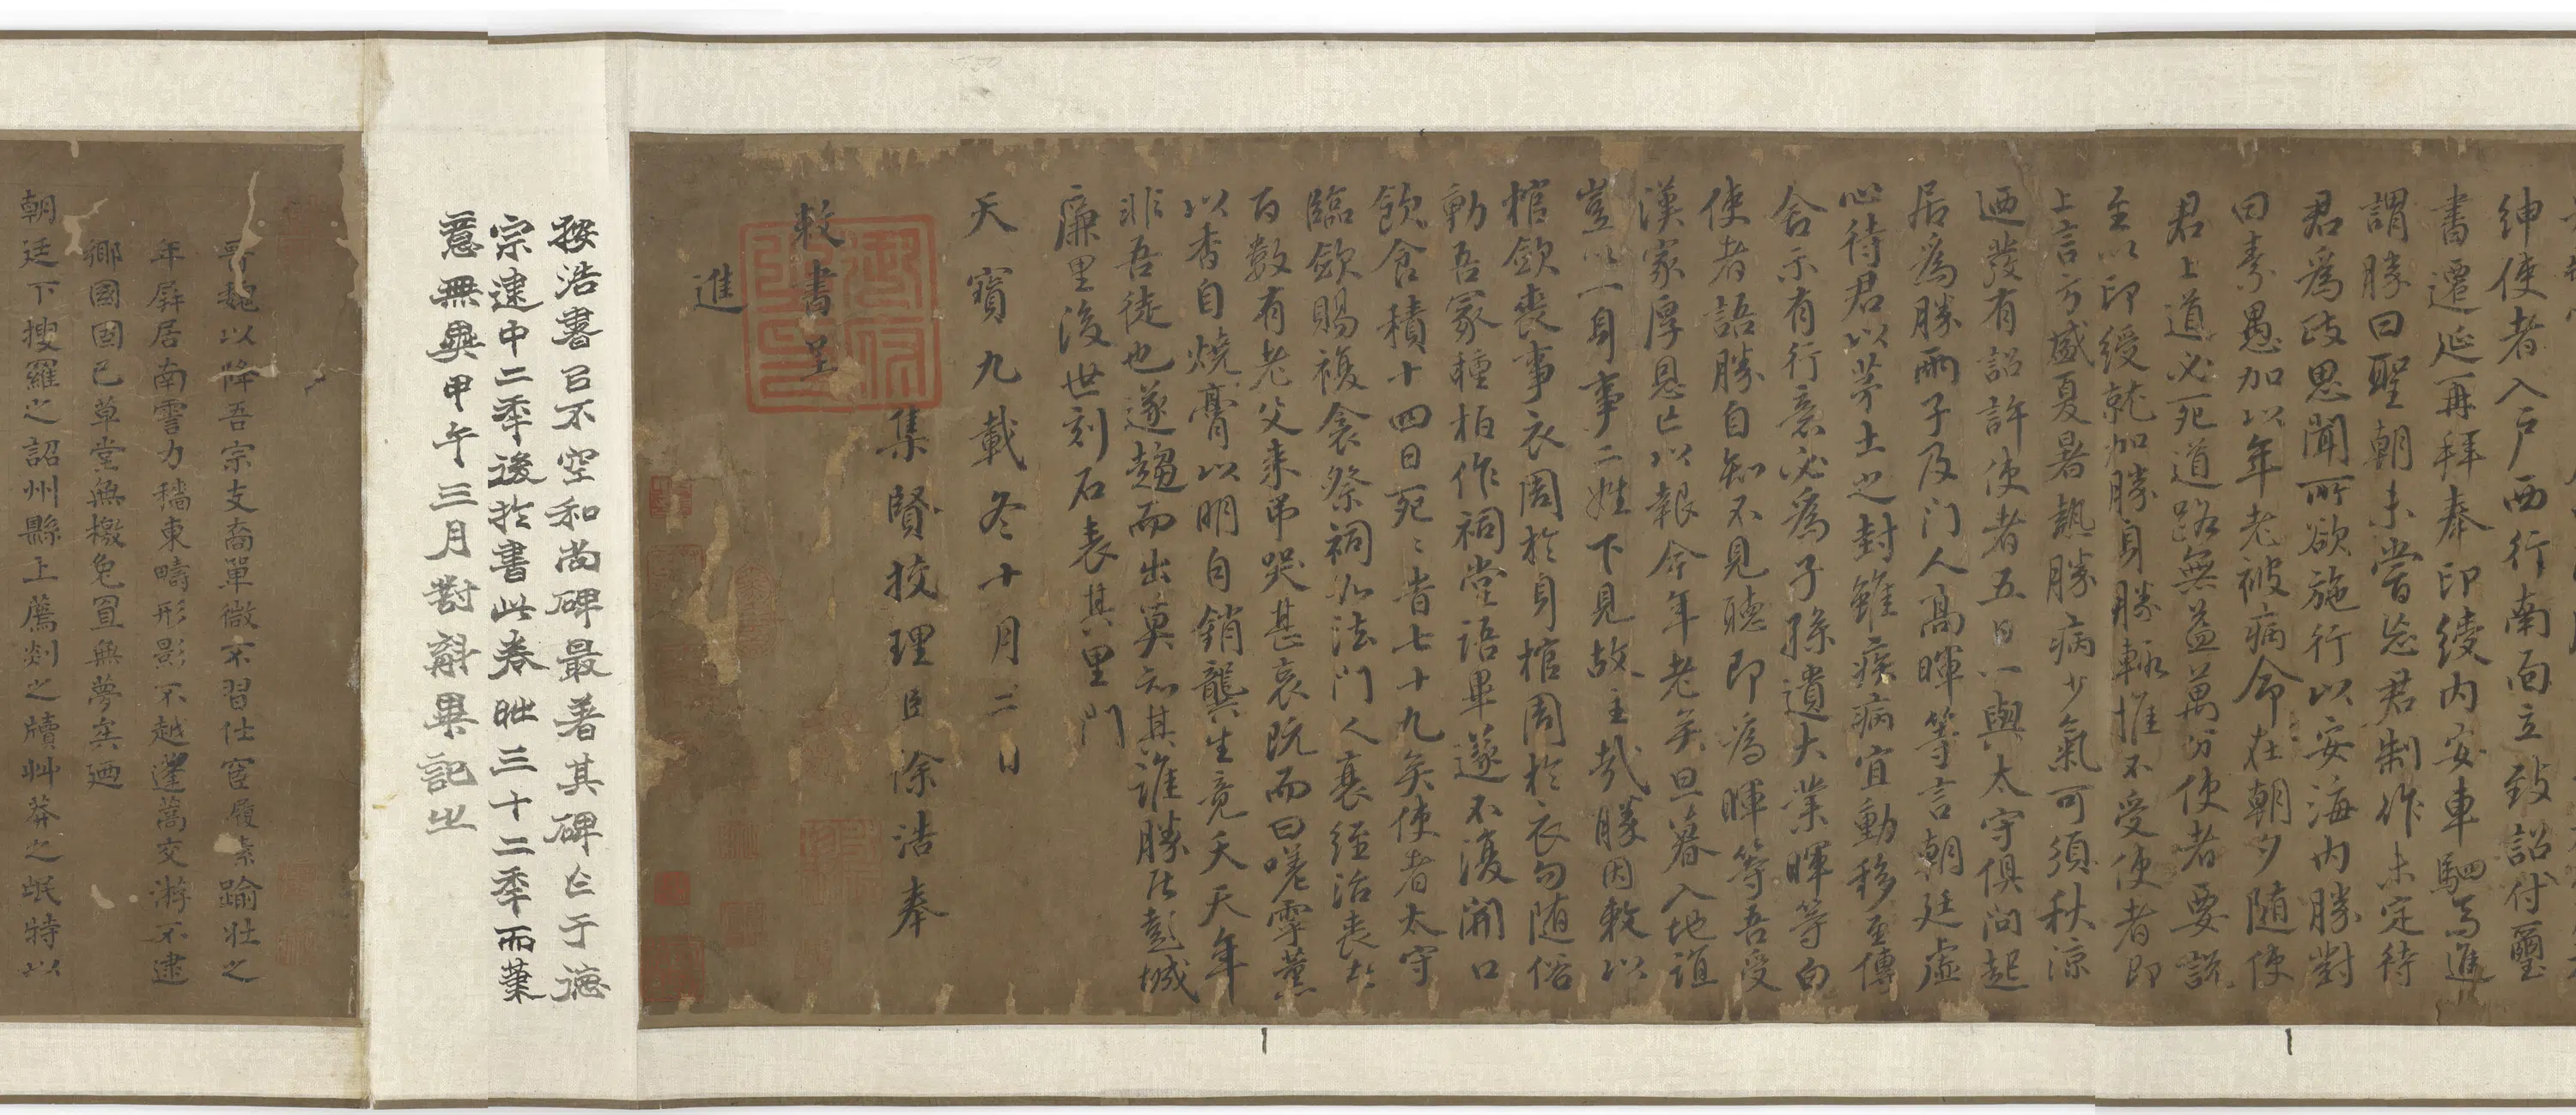 紳使者入戶西行南面立致詔付璽
書遷延再拜奉印綬內安車駟馬進
謂勝曰聖朝未嘗忘君制作未定待
君為政思聞所欲施行以安海內勝對
曰素愚加以年老被病命在朝夕隨使
君上道必死道路無益萬分使者要說
至以印綬就加勝身勝輒推不受使者即
上言方盛夏暑熱勝病少氣可須秋涼
迺發有詔許使者五日一與太守俱問起
居為勝兩子及門人高暉等言朝廷虛
心待君以茅土之封雖疾病宜動移至傳
舍示有行意必為子孫遺大業暉等白
使者語勝自知不見聽即為暉等吾受
漢家厚恩亡以報今年老矣旦暮入地誼
豈以一身事二姓下見故主哉勝因敕以
棺斂喪事衣周於身棺周於衣勿隨俗
動吾冢種柏作祠堂語畢遂不復開口
飲食積十四日死死者七十九矣使者太守
臨斂賜複衾祭祠如法門人衰絰治喪者
百數有老父來弔哭甚哀既而曰嗟虖薰
以香自燒膏以明自銷龔生竟夭天年
非吾徒也遂趨而出莫知其誰勝居彭城
廉里後世刻石表其里門
天寶九載冬十月二日
集賢挍理臣徐浩奉
敕書呈
進
御府
按浩書吕不空和尚碑最著其碑亡于德
宗建中二秊後於書此卷昢三十二秊而葉
意無異甲午三月對辭畢記㞢
以降吾宗支裔單微不習仕宦履素踰壯之
年屏居南雩力穡東疇形影不越蓬蒿交游不逮
鄉國固已草堂無檄兔罝無夢矣迺
朝廷下搜羅之詔州縣上薦剡之牘艸莽之氓特以